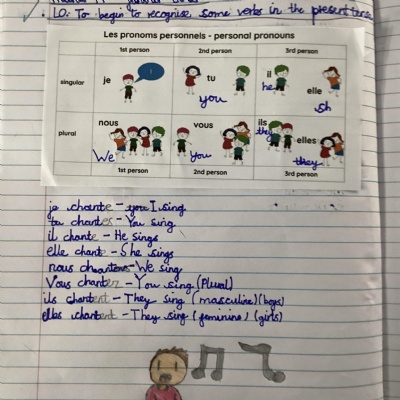 LO: To begin to recognise some verbs in the present tense
Les pronoms personnels - personal pronouns
1st person 2nd person 3rd person
singular je tu il elle
you he sh
plural nous vous ils elles
We you they they
1st person 2nd person 3rd person
je chante - you I sing
tu chantes - You sing
il chante - He sings
elle chante - She sings
nous chantons - We sing
Vous chantez - You sing (Plural)
ils chantent - They sing (masculine) (boys)
elles chantent - They sing (feminine) (girls)